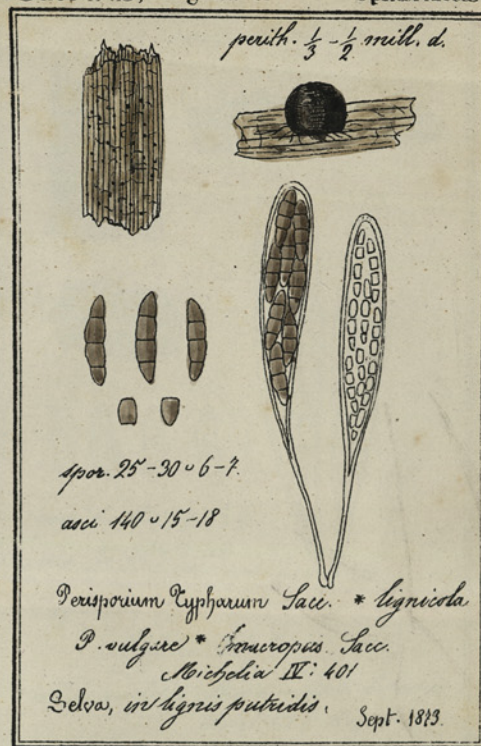 perith. 1/3 - 1/2 mill. d.
spor. 25-30 ᴗ 6-7
asci 140 ᴗ 15-18
Perisporium Typharum Sacc. * lignicola
P. vulgare * macropus Sacc.
Michelia IV: 401
Selva, in lignis putridis.
Sept. 1873.